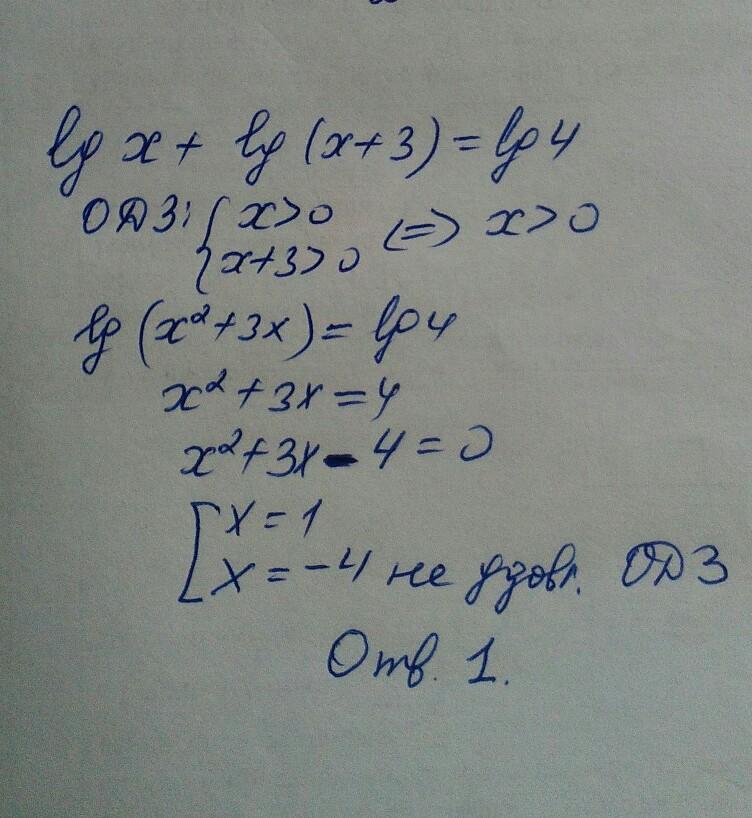 lg x + lg (x+3) = lg 4
ОДЗ: { x>0
{ x+3>0 <=> x>0
lg (x²+3x) = lg 4
x²+3x=4
x²+3x-4=0
[ x=1
[ x=-4 не удовл. ОДЗ
Отв. 1.